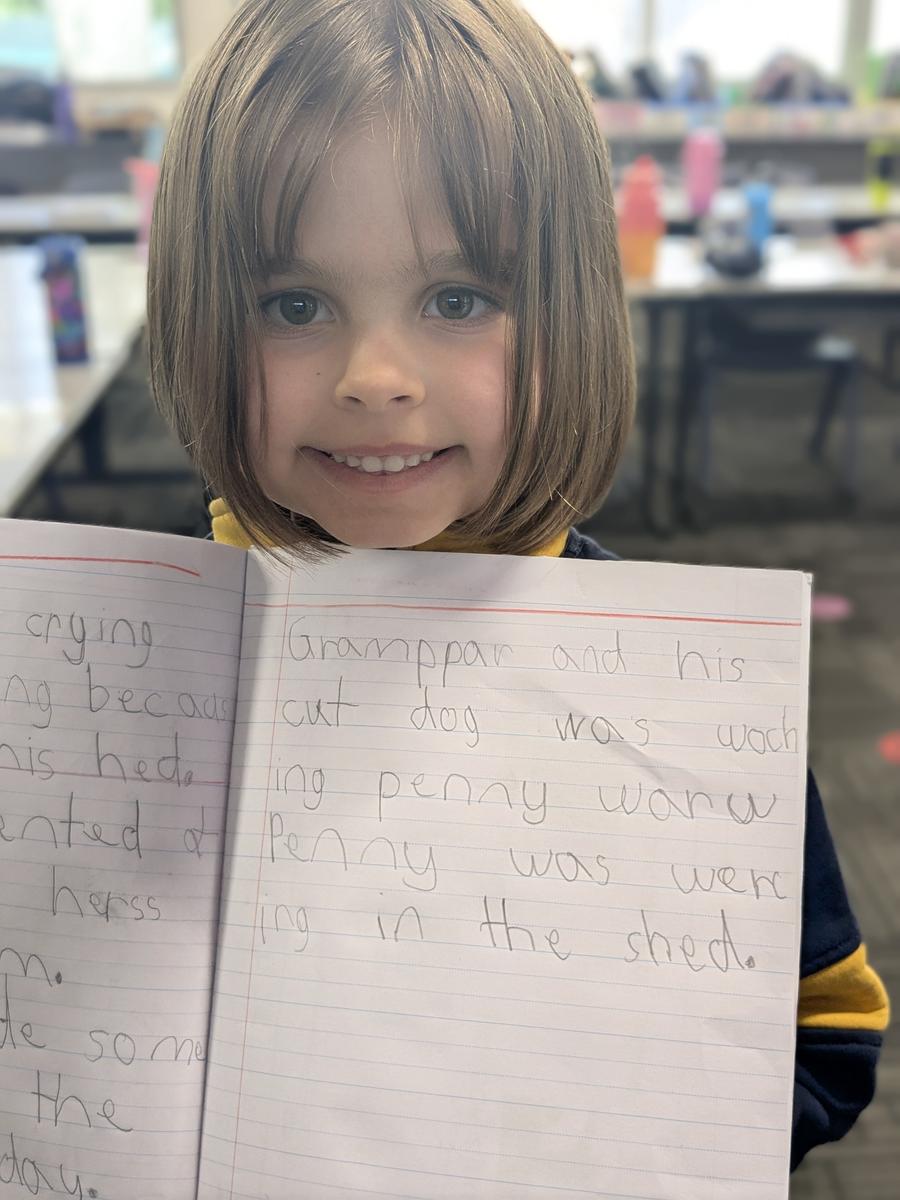 crying
ng becaus
his hed.
ented at
herss
m.
de some
the
day.
Gramppar and his
cut dog was woch
ing penny warw
Penny was werc
ing in the shed.